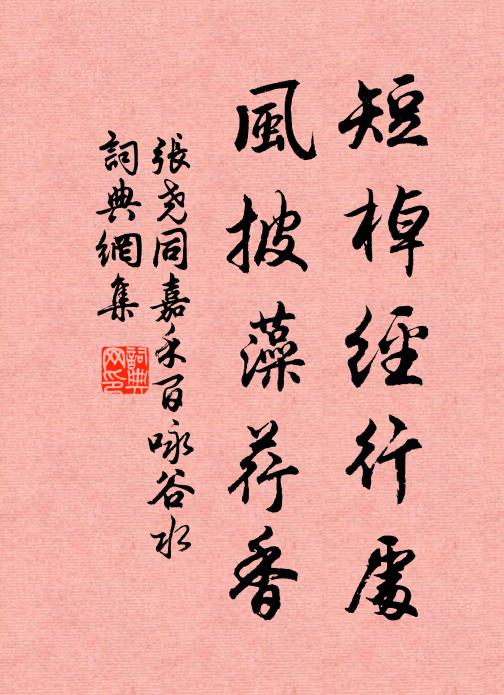 短棹經行處
風披藻荇香
張堯同嘉禾百咏谷水
詞典網集
詞典
网印